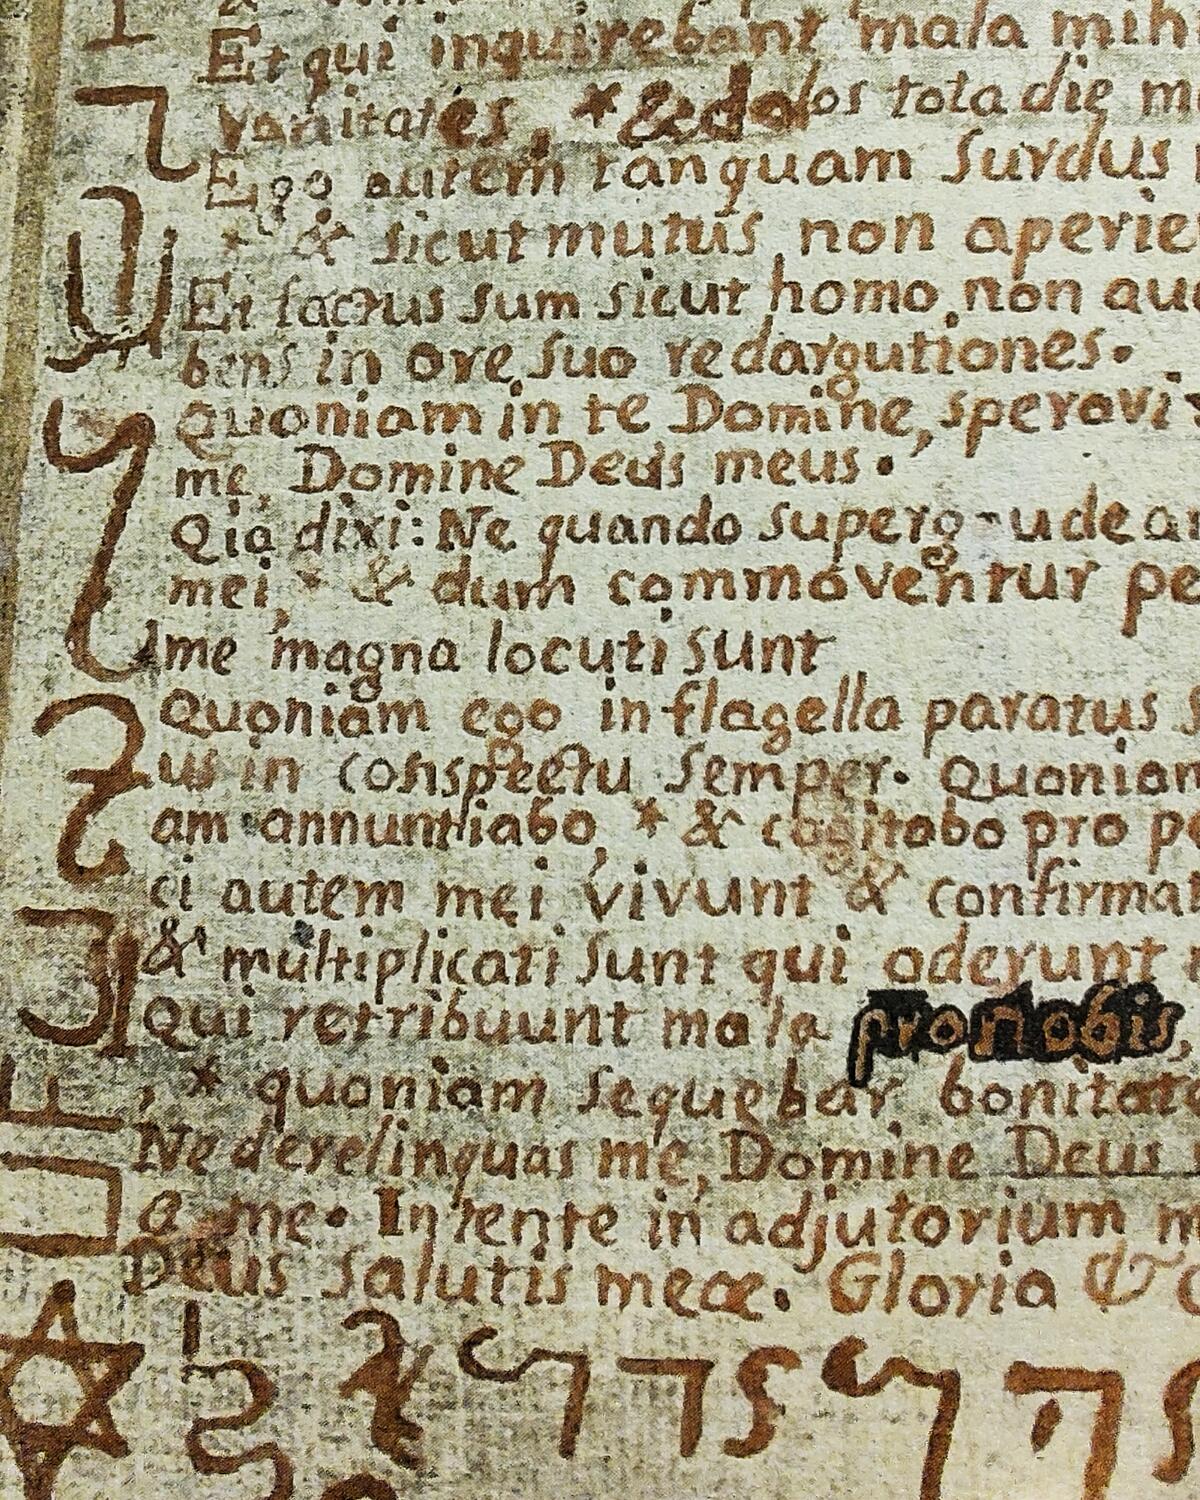 Et qui inquirebant mala mih
vanitates, * & dolos tota die m
Ego autem tanquam surdus
* & sicut mutus non aperie
Et factus sum sicut homo non au
bens in ore suo redargutiones.
Quoniam in te Domine, speravi
me, Domine Deus meus.
Qia dixi: Ne quando superg-udea
mei, * & dum commoventur pe
me magna locuti sunt
Quoniam ego in flagella paratus s
us in conspectu semper. Quoniam
am annuntiabo, * & cogitabo pro pe
ci autem mei vivunt & confirmat
& multiplicati sunt qui oderunt
Qui retribuunt mala pro nobis,
, * quoniam sequebar bonitate
Ne derelinquas me, Domine Deus
a me. Intente in adjutorium m
Deus salutis meæ. Gloria &